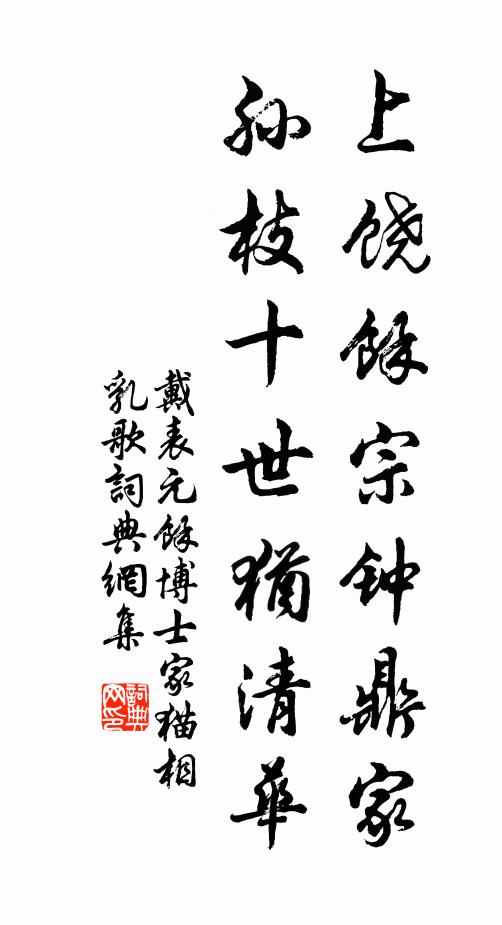 上饶餘宗钟鼎家
孙枝十世猶清華
戴表元餘博士家猫相
乳歌詞典網集
詞典网印